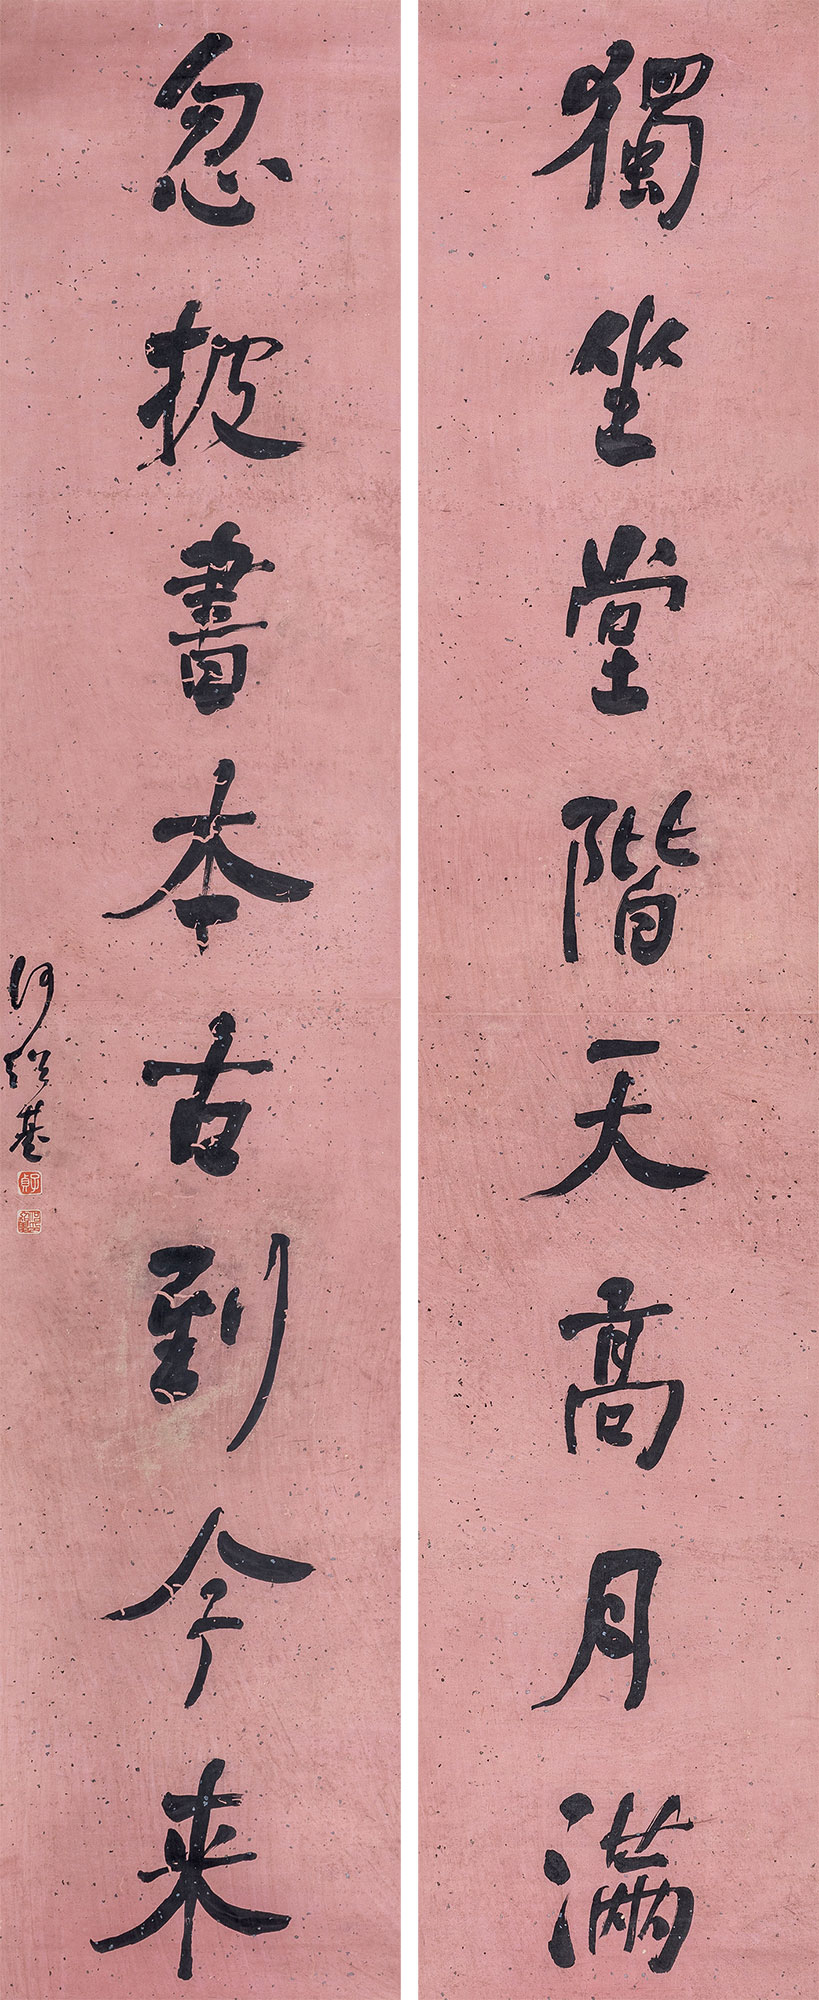 獨坐堂階天高月滿
忽披書本古到今来
何紹基
子貞